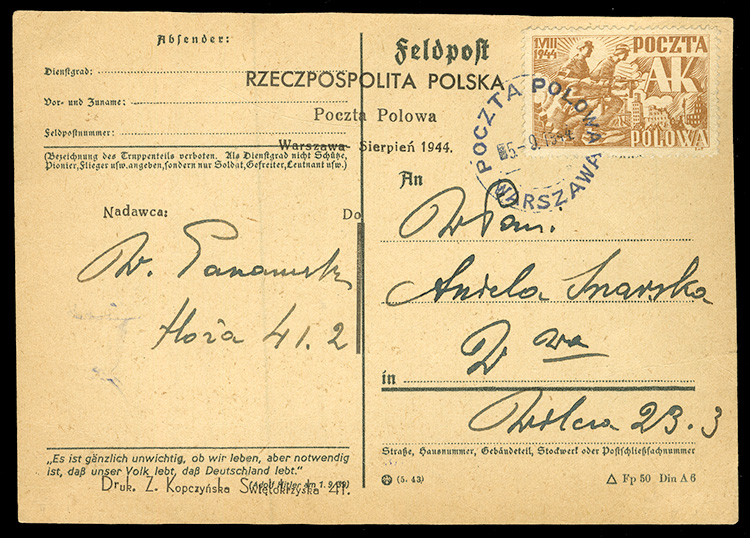 Absender:
Dienstgrad:
Vor- und Zuname:
Feldpostnummer:
(Bezeichnung des Truppenteils verboten. Als Dienstgrad nicht Schütze,
Pionier, Flieger usw. angeben, sondern nur Soldat, Gefreiter, Leutnant usw.)
Feldpost
RZECZPOSPOLITA POLSKA
Poczta Polowa
Warszawa - Sierpień 1944.
1.VIII
1944
POCZTA
AK
POLOWA
POCZTA POLOWA
WARSZAWA
An
WPan.
Aniela Snarska
W wa
in
Wilcza 23.3
Straße, Hausnummer, Gebäudeteil, Stockwerk oder Postschließfachnummer
Nadawca:
Do
W.
Hoża 41.2
„Es ist gänzlich unwichtig, ob wir leben, aber notwendig
ist, daß unser Volk lebt, daß Deutschland lebt."
(Adolf Hitler am 1. 9. 39)
Druk. Z. Kopczyńska Swiętokrzyska 41.
(5. 43)
Fp 50 Din A 6